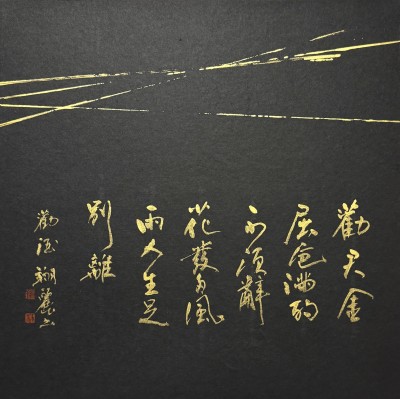 勸君金
屈卮滿酌
不須辭
花發多風
雨人生足
別離
勸酒